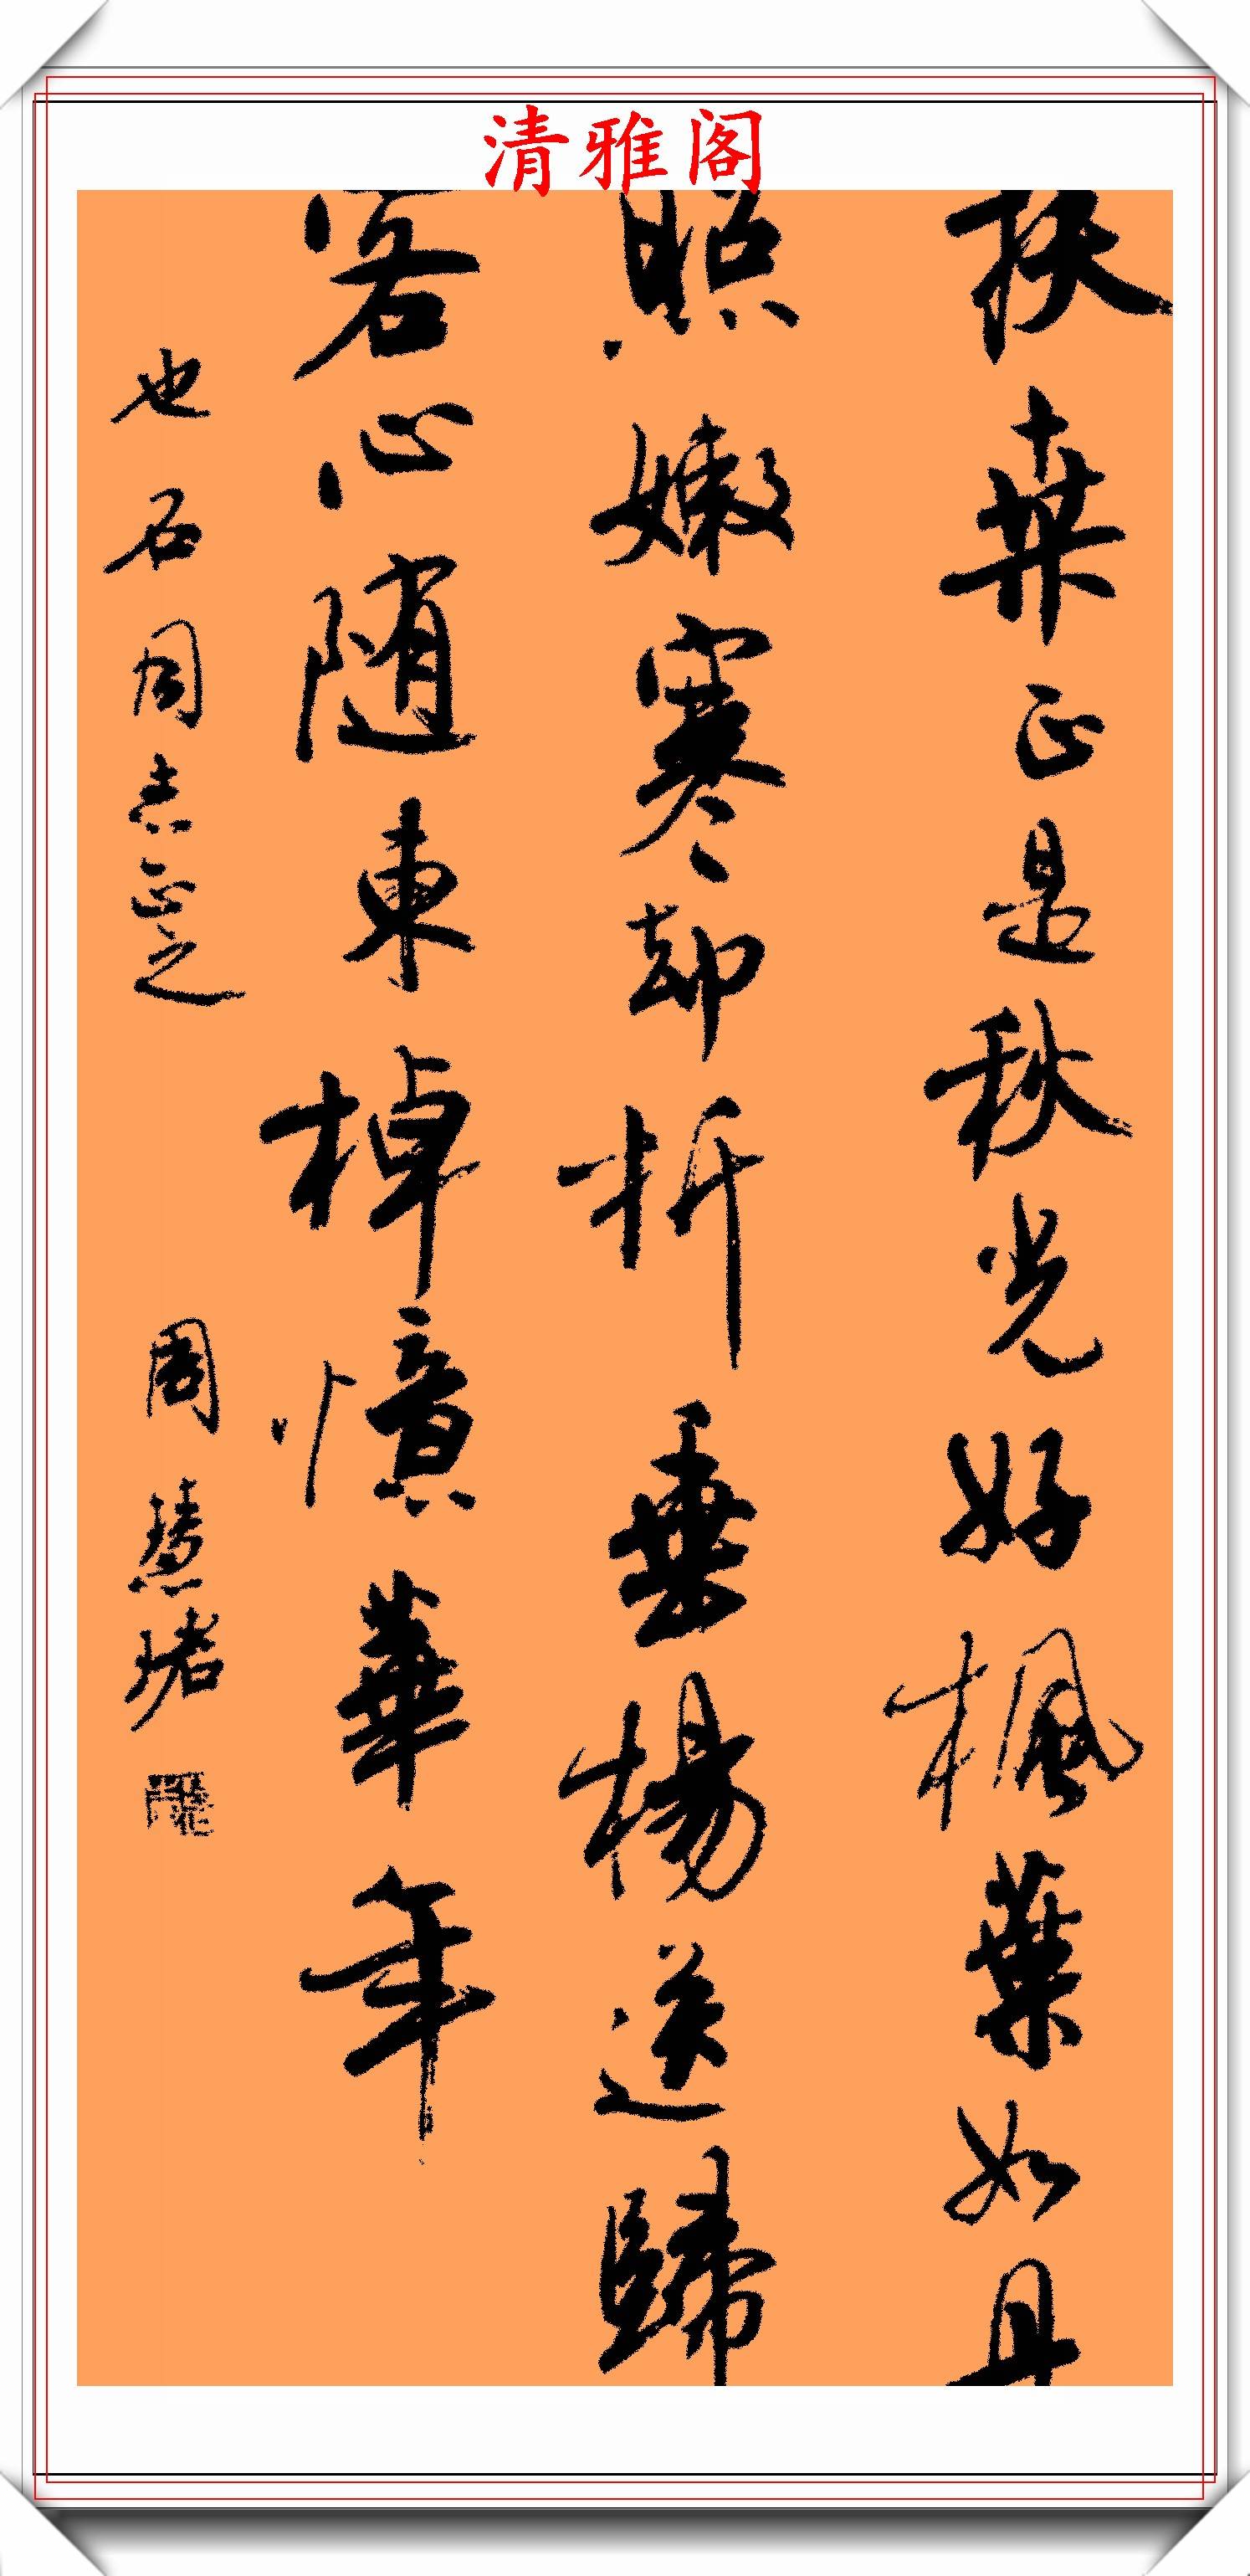 清雅阁
扶桑正是秋光好楓葉如丹
照嫩寒却折垂楊送歸
客心随東棹憶華年
也石同志正之
周慧珺